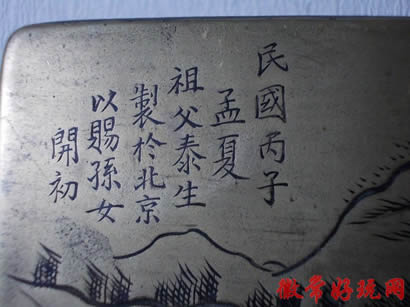 民國丙子
孟夏
祖父泰生
製於北京
以賜孫女
開初
徽帮好玩网